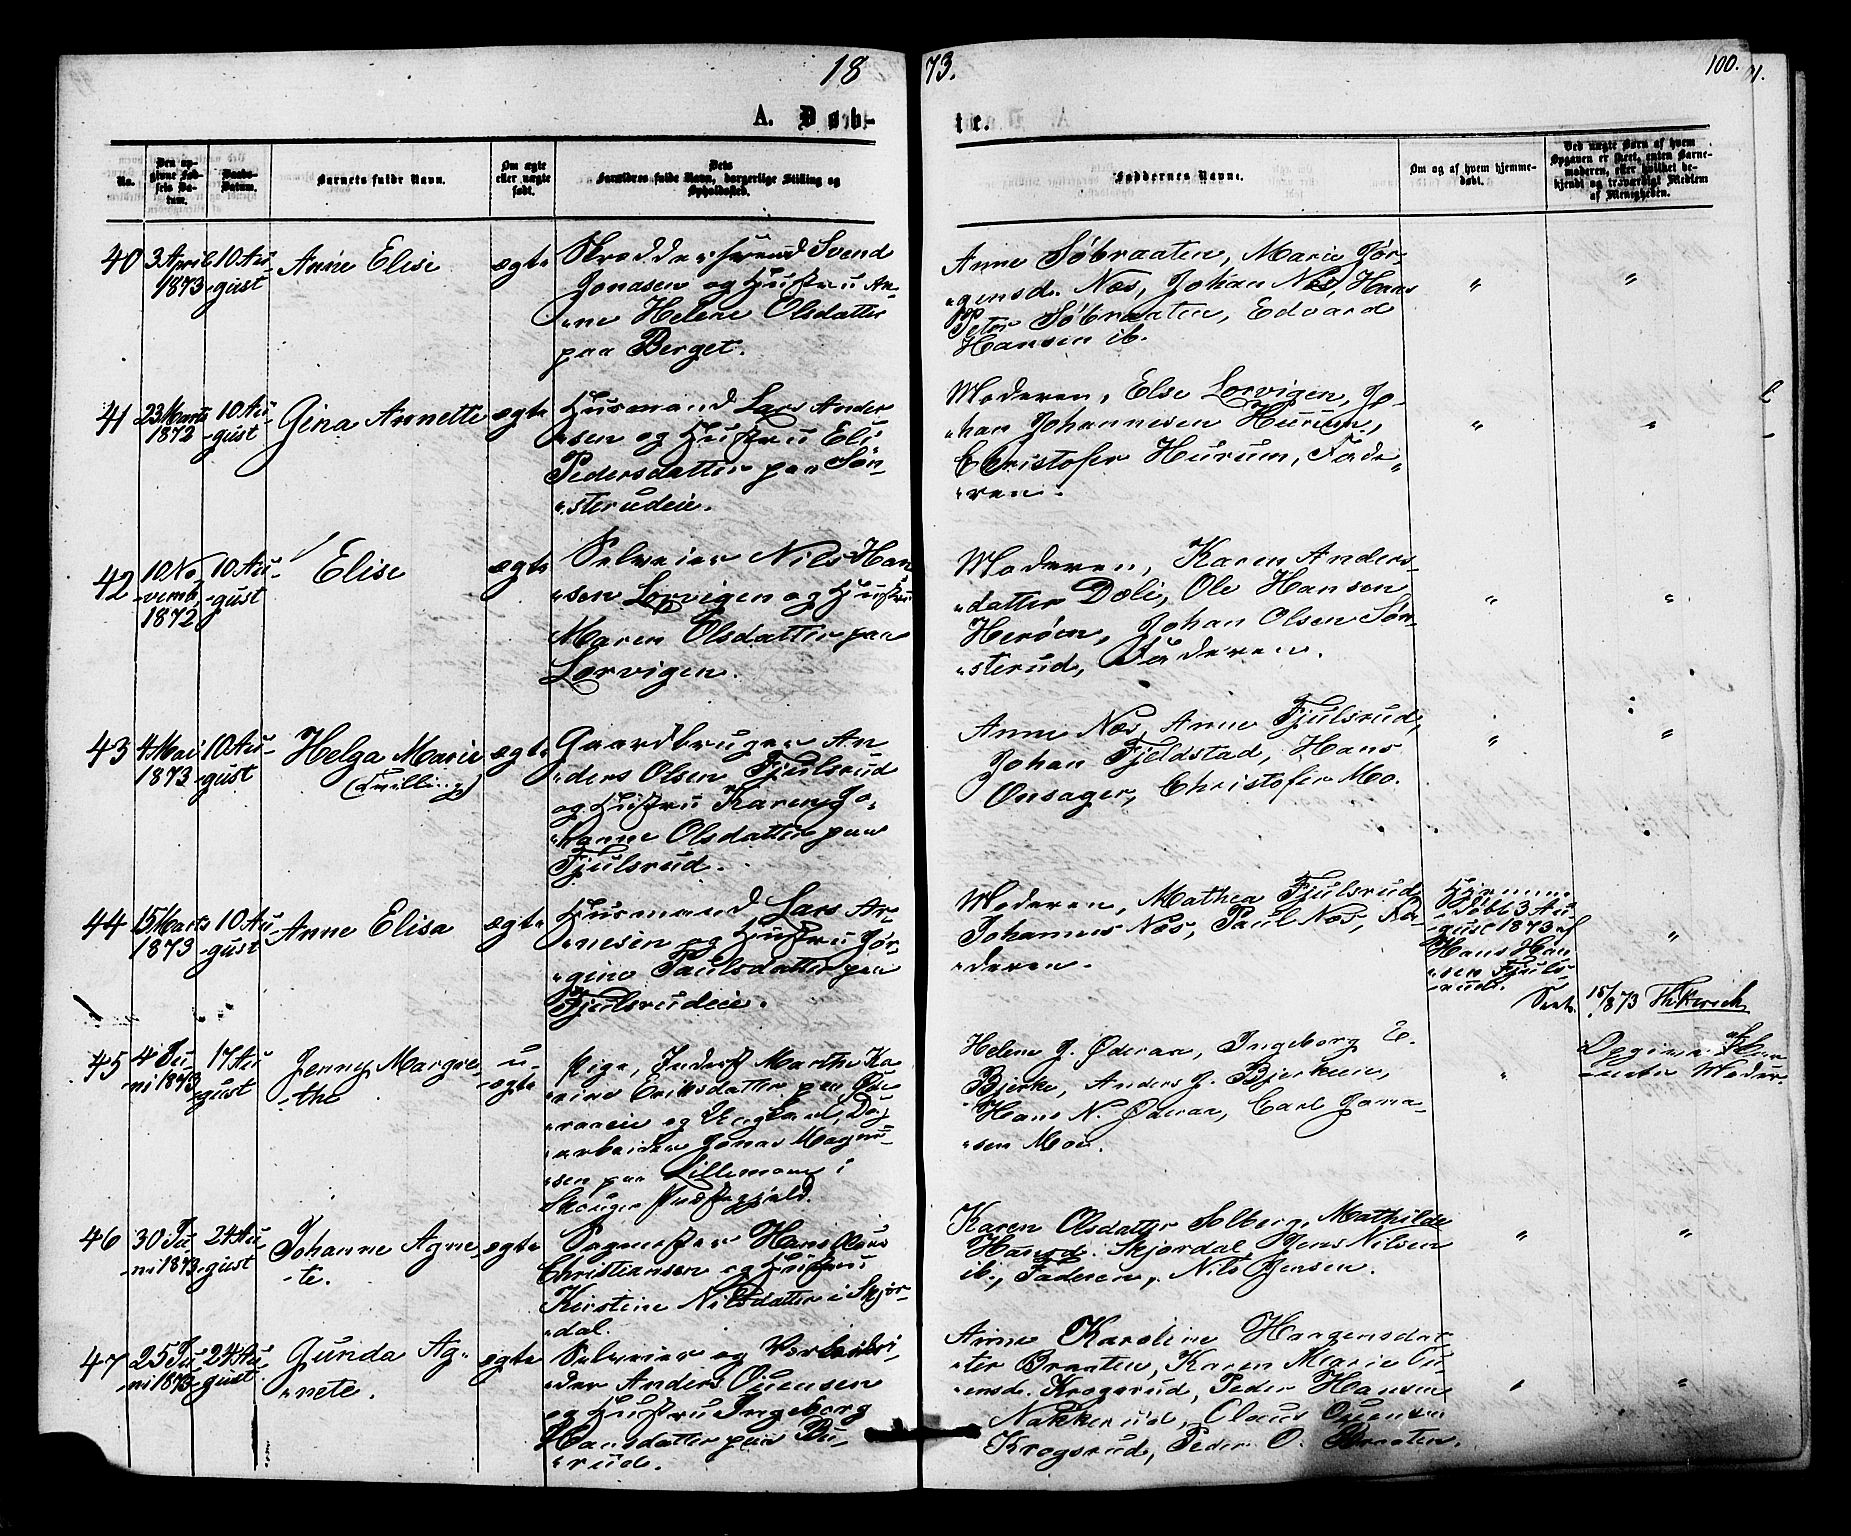 1873.
100.
A. Døbte.
No.
Den opgivne Fødsels Datum.
Daabs-Datum.
Barnets fulde Navn.
Om ægte eller uægte født.
Dets Forældres fulde Navn, borgerlige Stilling og Opholdssted.
Faddernes Navne.
Om og af hvem hjemmedøbt.
Ved uægte Børn af hvem Opgaven er skeet, enten Barnemoderen, eller hvilket bekjendt og troværdigt Medlem af Menigheden.
40
3 April
1873
10 Au-
-gust
Anne Elise
ægte
Skræddersvend Svend
Jonasen og Hustru An-
-ne Helene Olsdatter
paa Berget.
Anne Søbraaten, Marie Jør-
-gensd. Næs, Johan Næs, Hans
Peter Søbraaten, Edvard
Hansen ib.
"
"
41
23 Marts
1872
10 Au-
-gust
Gina Annette
ægte
Husmand Lars Ander
-sen og Hustru Eli
Pedersdatter paa Søn-
-sterudeie.
Moderen, Else Lorvigen, Jo-
-han Johannesen Hurum,
Christofer Hurum, Fade-
-ren.
"
"
42
10 No-
-vemb.
1872
10 Au-
-gust
Elise
ægte
Selveier Nils Han
-sen Lorvigen og Hustru
Maren Olsdatter paa
Lorvigen.
Moderen, Karen Anders-
-datter Dæli, Ole Hansen
Herøen, Johan Olsen Søn-
-sterud, Faderen.
"
"
43
4 Mai
1873
10 Au-
-gust
Helga Marie
(Tvilling)
ægte
Gaardbruger An
-ders Olsen Fjulsrud
og Hustru Karen Jo-
-hanne Olsdatter paa
Fjulsrud.
Anne Næs, Anne Fjulsrud,
Johan Fjeldstad, Hans
Onsager, Christofer Mo.
"
"
44
15 Marts
1873
10 Au-
-gust
Anne Elisa
ægte
Husmand Lars Ar-
-nesen og Hustru Jør-
-gine Paulsdatter paa
Fjulsrudeie.
Moderen, Mathea Fjulsrud
Johannes Næs, Paul Næs, Fa-
-deren.
Hjemme-
døbt 3 Au-
-gust 1873 af
Hans Han-
-sen Fjuls-
-rud.
"
45
4 Ju-
-ni 1873
17 Au-
gust
Jenny Margre-
-the
u-
-ægte
Pige, Inderst Marthe Ka-
-rine Eriksdatter paa Øde-
-raaeie og Ungkarl, Dag-
-arbeider Jonas Magnu-
-sen paa Lillemoen i
Skouger Præstegjæld.
Helene J. Øderaa, Ingeborg E.
Bjerke, Anders J. Bjerkeen,
Hans N. Øderaa, Carl Jona-
-sen Moe.
"
46
30 Ju-
-ni 1873
24 Au-
-gust
Johanne Agne
-te.
ægte
Sagmester Hans Olaus
Christiansen og Hustru
Kirstine Nilsdatter i Skjør-
-dal.
Karen Olsdatter Solberg, Mathilde
Hansd. Skjørdal, Jens Nilsen
ib., Faderen, Nils Jensen.
"
"
47
25 Ju-
-ni 1873
24 Au-
gust
Gunda Ag-
-nete.
ægte
Selveier og
Anders Ouensen
og Hustru Ingeborg
Hansdatter paa Bu-
-rud.
Anne Karoline Haagensdat-
-ter Braaten, Karen Marie Ou-
-ensd. Krogsrud, Peder Hansen
Nakkerud, Claus Ouensen
Krogsrud, Peder O. Braaten.
"
"